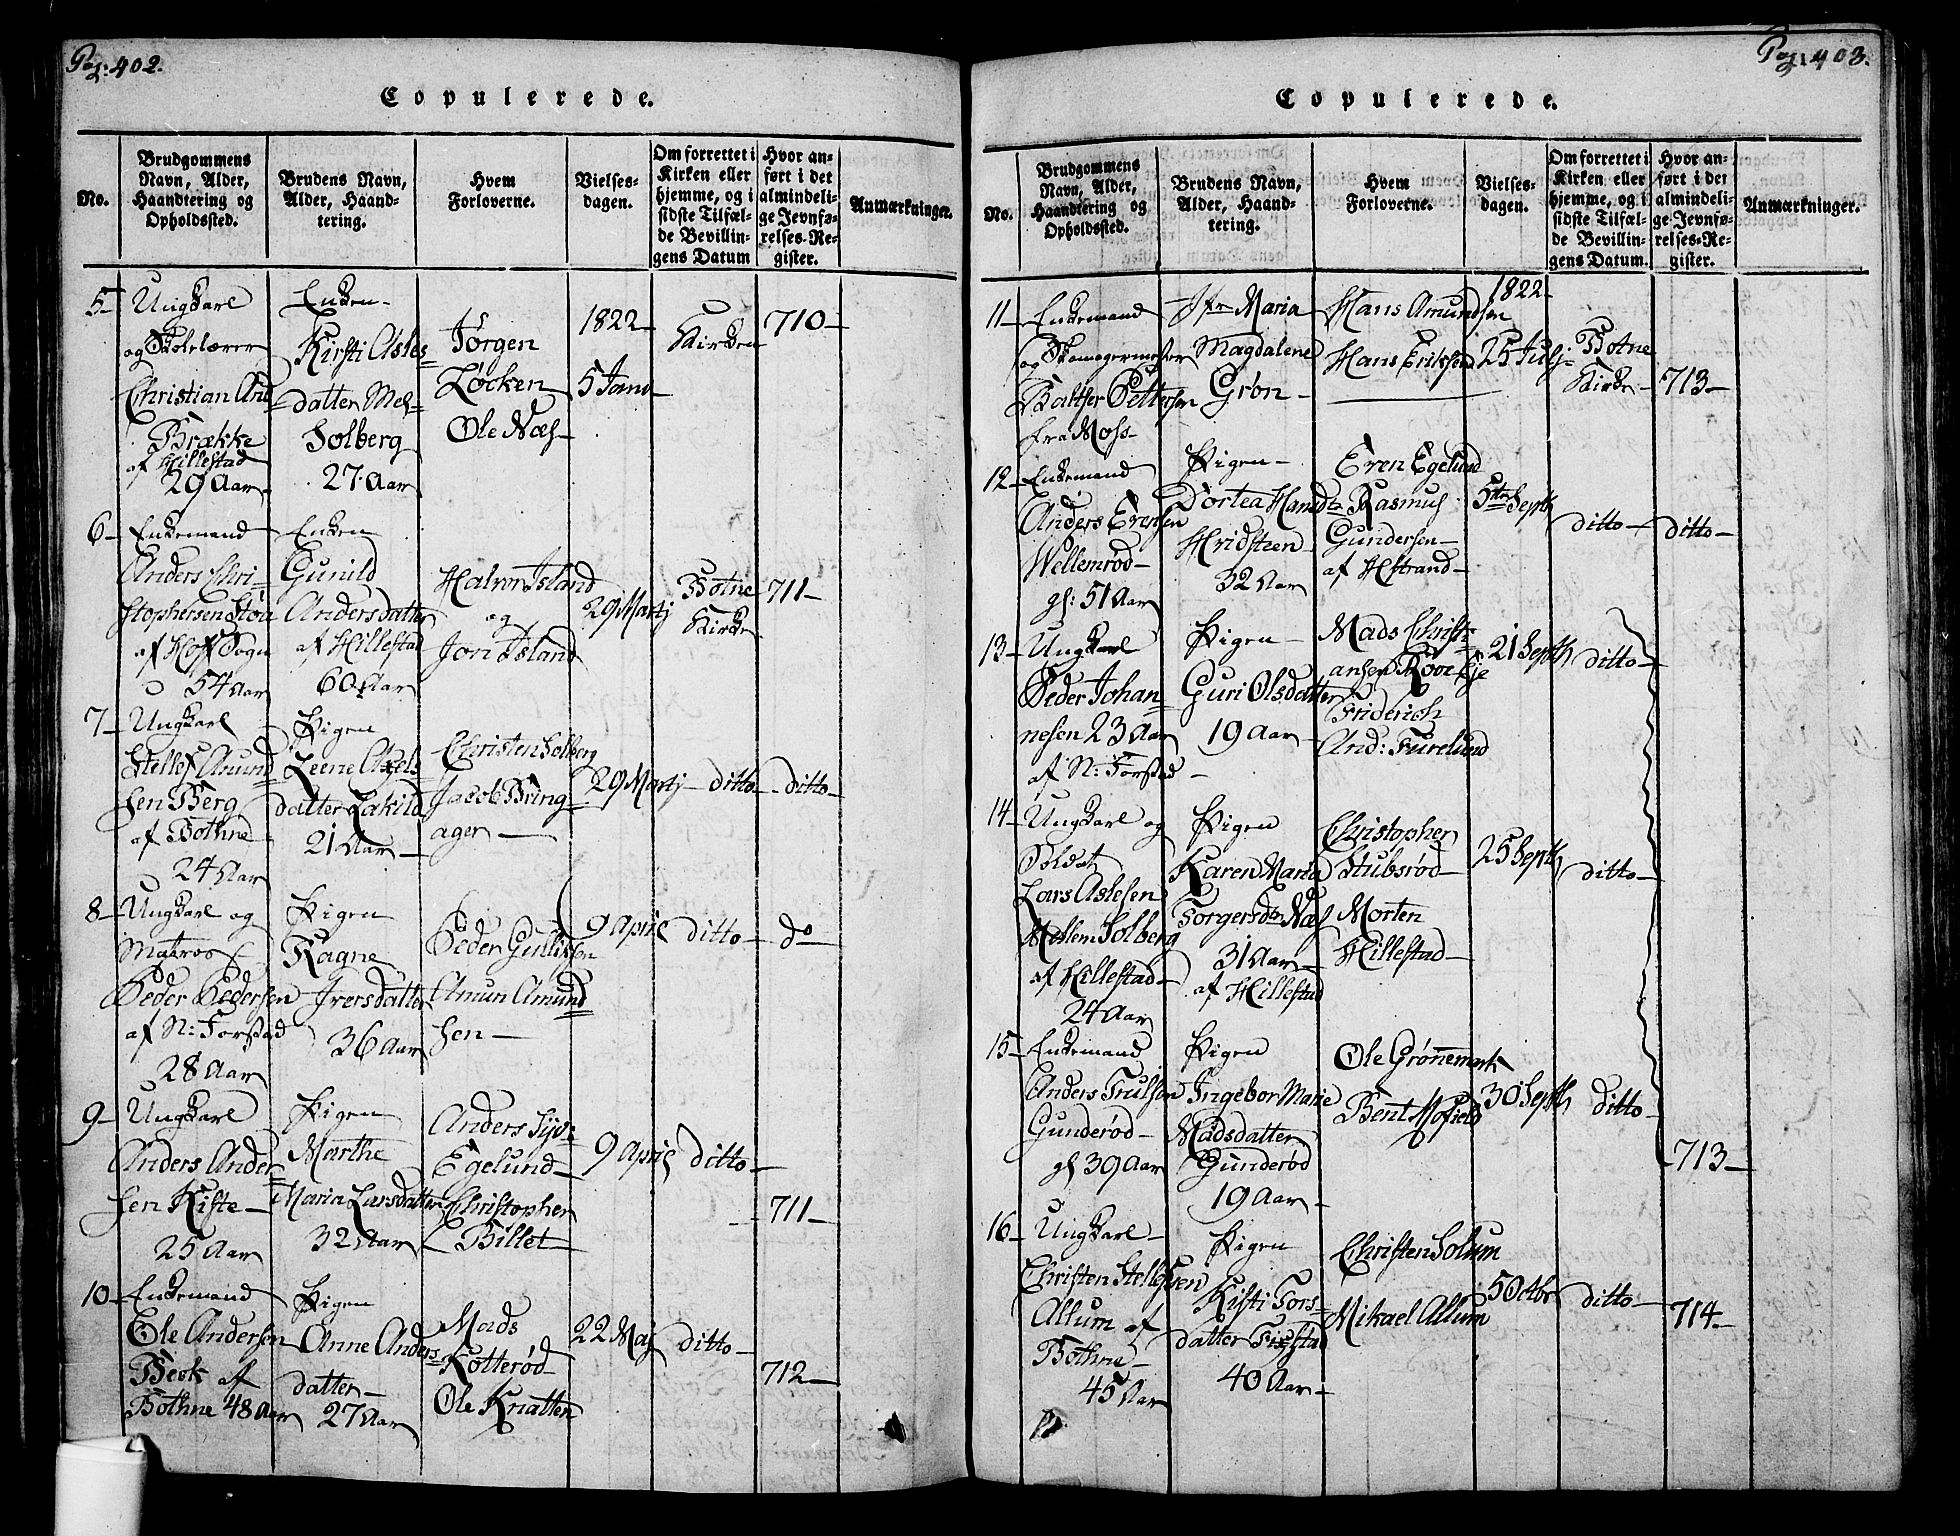 Pag: 402.
Copulerede.
No.
Brudgommens
Navn, Alder,
Haandtering og
Opholdssted.
Brudens Navn,
Alder, Haand-
tering.
Hvem
Forloverne.
Vielses-
dagen.
Om forrettet i
Kirken eller
hjemme, og i
sidste Tilfæl-
de Bevillin-
gens Datum
Hvor an-
ført i det
almindeli-
ge Jevnfø-
relses-Re-
gister.
Anmærkninger.
5-
Ungkarl
og Skolelærer
Christian And
Brække
af Hillestad
29 Aar
Enken-
Kirsti Asles-
datter Mel-
Solberg
27 Aar
Jørgen
Løcken
Ole Næs-
1822-
5 Janv-
Kirken
710-
6-
Enkemand
Anders Chri-
stophersen Stoa
af Hoff Sogn
54 Aar
Enken
Gunild
Andersdatter
af Hillestad
60 Aar
Halvor Island
og
Jon Island
29 Martj
Botne
Kirke
711-
7-
Ungkarl
Stellef Amund
sen Berg
af Bothne
24 Aar
Pigen
Leene Axels
datter Lakild
21 Aar-
Christen Solberg
Jacob Bring-
ager-
29 Martj-
ditto-
-ditto-
8-
Ungkarl og
Matros-
Peder Pedersen
af N: Forstad
28 Aar
Pigen
Ragne
Iversdatter
36 Aar
Peder Gulliksen
Amun Amund
sen-
9 April
ditto-
do
9-
Ungkarl
Anders Ander-
sen Kiste-
25 Aar
Pigen
Marthe
Maria Larsdatter
32 Aar
Anders Syv:
Egelund-
Christopher
Billet-
9 April
ditto-
711-
10-
Enkemand
Ole Andersen
Besk af
Bothne 48 Aar
Pigen
Anne Anders-
datter-
27 Aar
Mads
Kotterød-
Ole Knatten
22 Maj
ditto-
712-
Pag: 403.
Copulerede.
No.
Brudgommens
Navn, Alder,
Haandtering og
Opholdssted.
Brudens Navn,
Alder, Haand-
tering.
Hvem
Forloverne.
Vielses-
dagen.
Om forrettet i
Kirken eller
hjemme, og i
sidste Tilfæl-
de Bevillin-
gens Datum.
Hvor an-
ført i det
almindeli-
ge Jevnfø-
relses-Re-
gister.
Anmærkninger.
11-
Enkemand
og Skomagermester
Baltser Pettersen
fra Moss-
Jfr Maria
Magdalene
Grøn-
Hans Amundsen
Hans Eriksen
1822-
25 Julj-
Botne
Kirke-
713-
12-
Enkemand
Anders Erensen
Wellemrød-
gl: 51 Aar
Pigen-
Dortea Hansdtr
Hvidsteen
32 Aar
Eren Egelund
Rasmus
Gundersen-
af Hstrand-
5te Septb
ditto-
ditto-
13-
Ungkarl
Peder Johan-
nesen 23 Aar
af N: Forstad-
Pigen-
Guri Olsdatter
19 Aar-
Mads Christi-
ansen Rove Eje
Friderich
And: Furelund
21 Septb
ditto-
14-
Ungkarl og
Soldat
Lars Aslesen
Mellem Solberg
af Hillestad-
24 Aar
Pigen
Karen Maria
Torgersdtr Næs
31 Aar-
af Hillestad
Christopher
Stubsrød-
Morten
Hillestad-
25 Septb
ditto-
15-
Enkemand
Anders Trulsen
Gunderød-
gl 39 Aar
Pigen
Ingebor Marie
Madsdatter
Gunderød
19 Aar-
Ole Grønnemark
Bent Mofield
30 Septb
ditto-
713-
16-
Ungkarl-
Christen Stellefsen
Allum af
Bothne-
45 Aar
Pigen
Kisti Tors-
datter Fixstad
40 Aar-
Christen Solum
Mikael Allum
5 Octbr
ditto-
714-